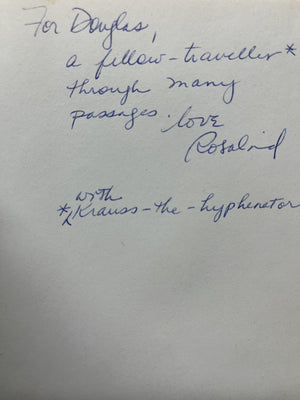 For Douglas,
a fellow-traveller*
through many
passages. love
Rosalind
with
*^Krauss-the-hyphenator